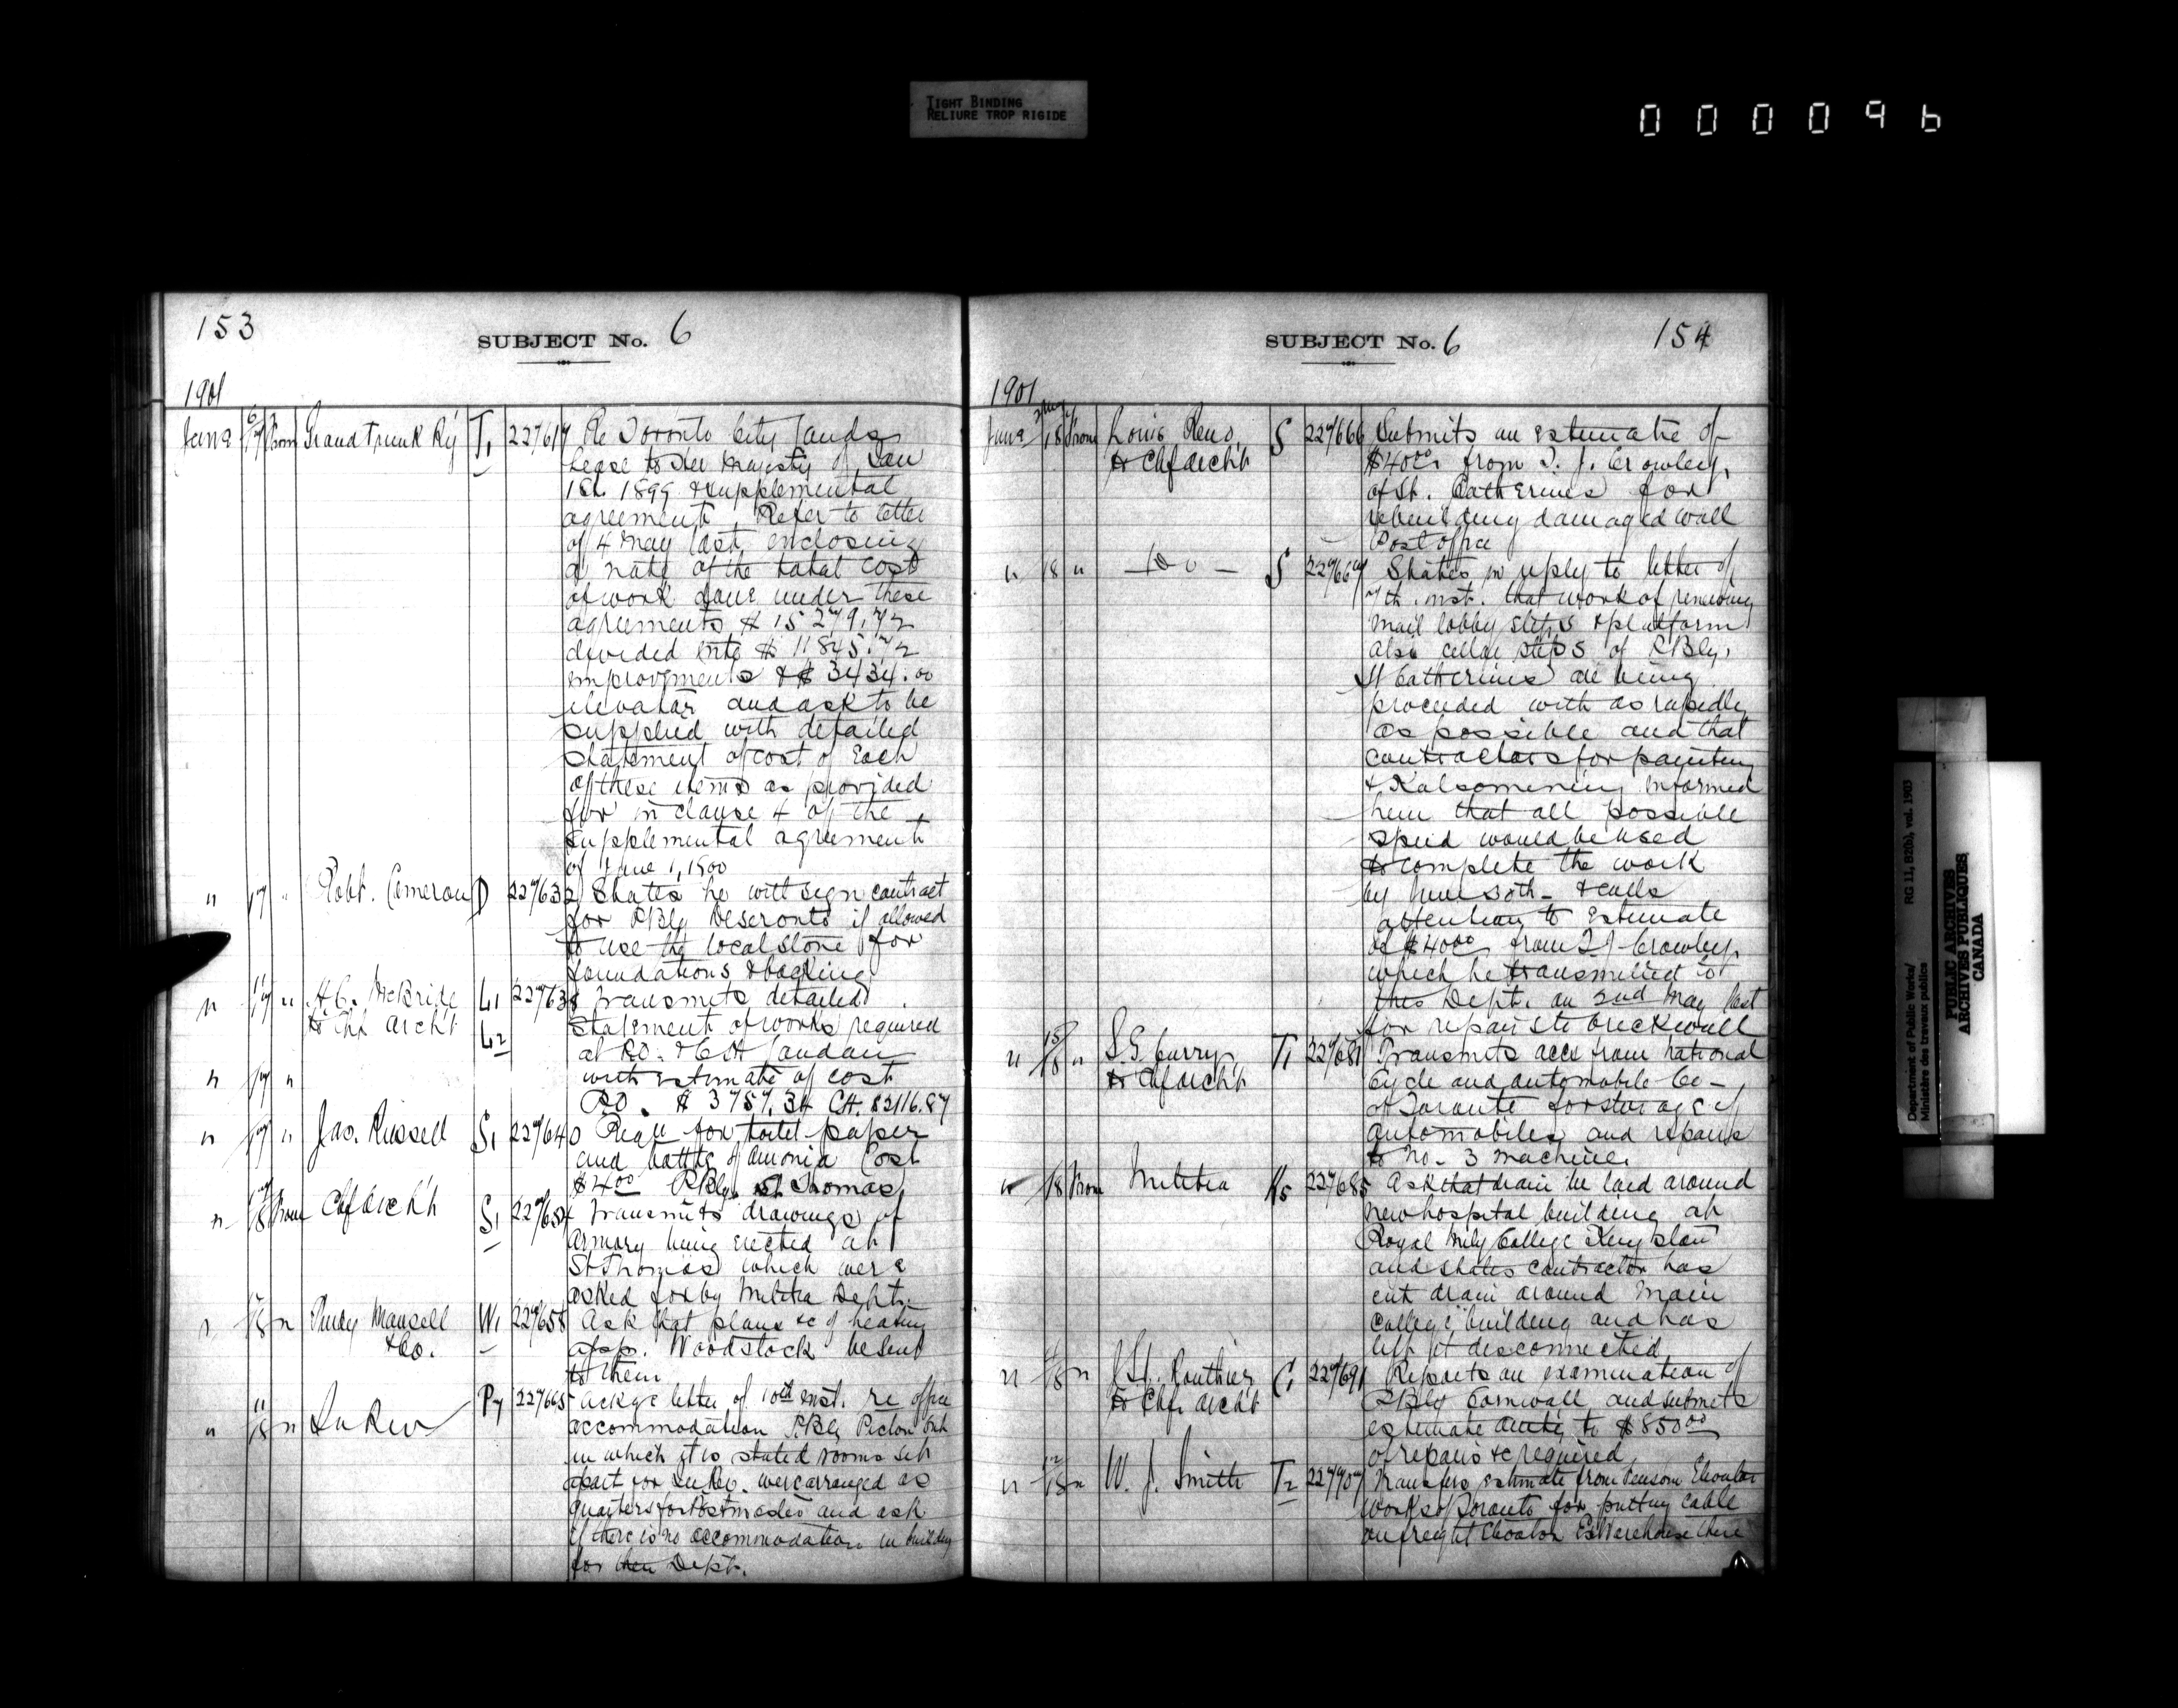 TIGHT BINDING
RELIURE TROP RIGIDE
000096
153
SUBJECT No. 6
1901
June 17 From Grand Trunk Ry T1 227617 Re Toronto City lands
Lease to Her Majesty of Jan
1st 1899 & supplemental
agreement. Refer to letter
of 4 May last enclosing
of the total cost
of work done under these
agreements $ 15 279.72
divided into $ 11845.72
improvements & $ 3434.00
elevator and ask to be
supplied with detailed
statement of cost of Each
of these items as provided
for in clause 4 of the
supplemental agreement
of June 1, 1900
" 17 " Robt. Cameron D 227632 States he will sign contract
for PBly Deseronto if allowed
to use the local stone for
foundations & backing
" 17 " H.C. McBride L1 227638 Transmits detailed
to Chf Archt L2 Statement of works required
at P.O. & C.H London
" 17 " with estimate of cost
P.O. $ 3757.34 C.H. $2116.87
" 17 " Jas. Russell S1 227640 Requ for toilet paper
and bottle of amonia Cost
$4.00 PBly St Thomas
" 18 From Chf Archt S1 227654 Transmits drawings of
Armory being erected at
St Thomas which were
asked for by Militia Dept.
" 18 " Purdy Mansell W1 227658 Ask that plans &c of heating
& Co. appar. Woodstock be sent
to them
" 18 " In Rev P7 227665 Ackge letter of 10th inst. re office
accommodation P.Bly Picton Ont
in which it is stated rooms set
apart for In Rev. were arranged as
quarters for Postmaster and ask
if there is no accommodation in building
for their Dept.
SUBJECT No. 6
154
1901
June 18 From Louis Reno S 227666 Submits an estimate of
to Chf Archt $40.00 from T. J. Crowley,
of St. Catherines for
rebuilding damaged wall
Post office
" 18 " — do — S 227667 States in reply to letter of
7th inst. that work of renewing
mail lobby steps & platform
also cellar steps of PBly.
St Catherines are being
proceeded with as rapidly
as possible and that
contractors for painting
& Kalsomening informed
him that all possible
speed would be used
to complete the work
by June 30th - & calls
attention to Estimate
of $40.00 from T J Crowley
which he transmitted to
this Dept. on 2nd May last
for repairs to brick wall
" 18 " S.G. Curry T1 227681 Transmits accs from National
to Chf Archt Cycle and automobile Co -
of Toronto for storage of
automobiles and repairs
to No. 3 machine.
" 18 From Militia K5 227685 Ask that drain be laid around
new hospital building at
Royal Mily College Kingston
and states contractor has
cut drain around main
college building and has
left it disconnected
" 18 " J St. Routhier C1 227691 Reports on examination of
to Chf. Archt PBly Cornwall and submits
estimate to $850.00
of repairs &c required
" 18 " W. J. Smith T2 227707 Transfers estimate from Fensom Elevator
works of Toronto for putting cable
on freight Elevator Ex Warehouse there
Department of Public Works/
Ministère des travaux publics
RG 11, B2(b), vol. 1903
PUBLIC ARCHIVES
ARCHIVES PUBLIQUES
CANADA